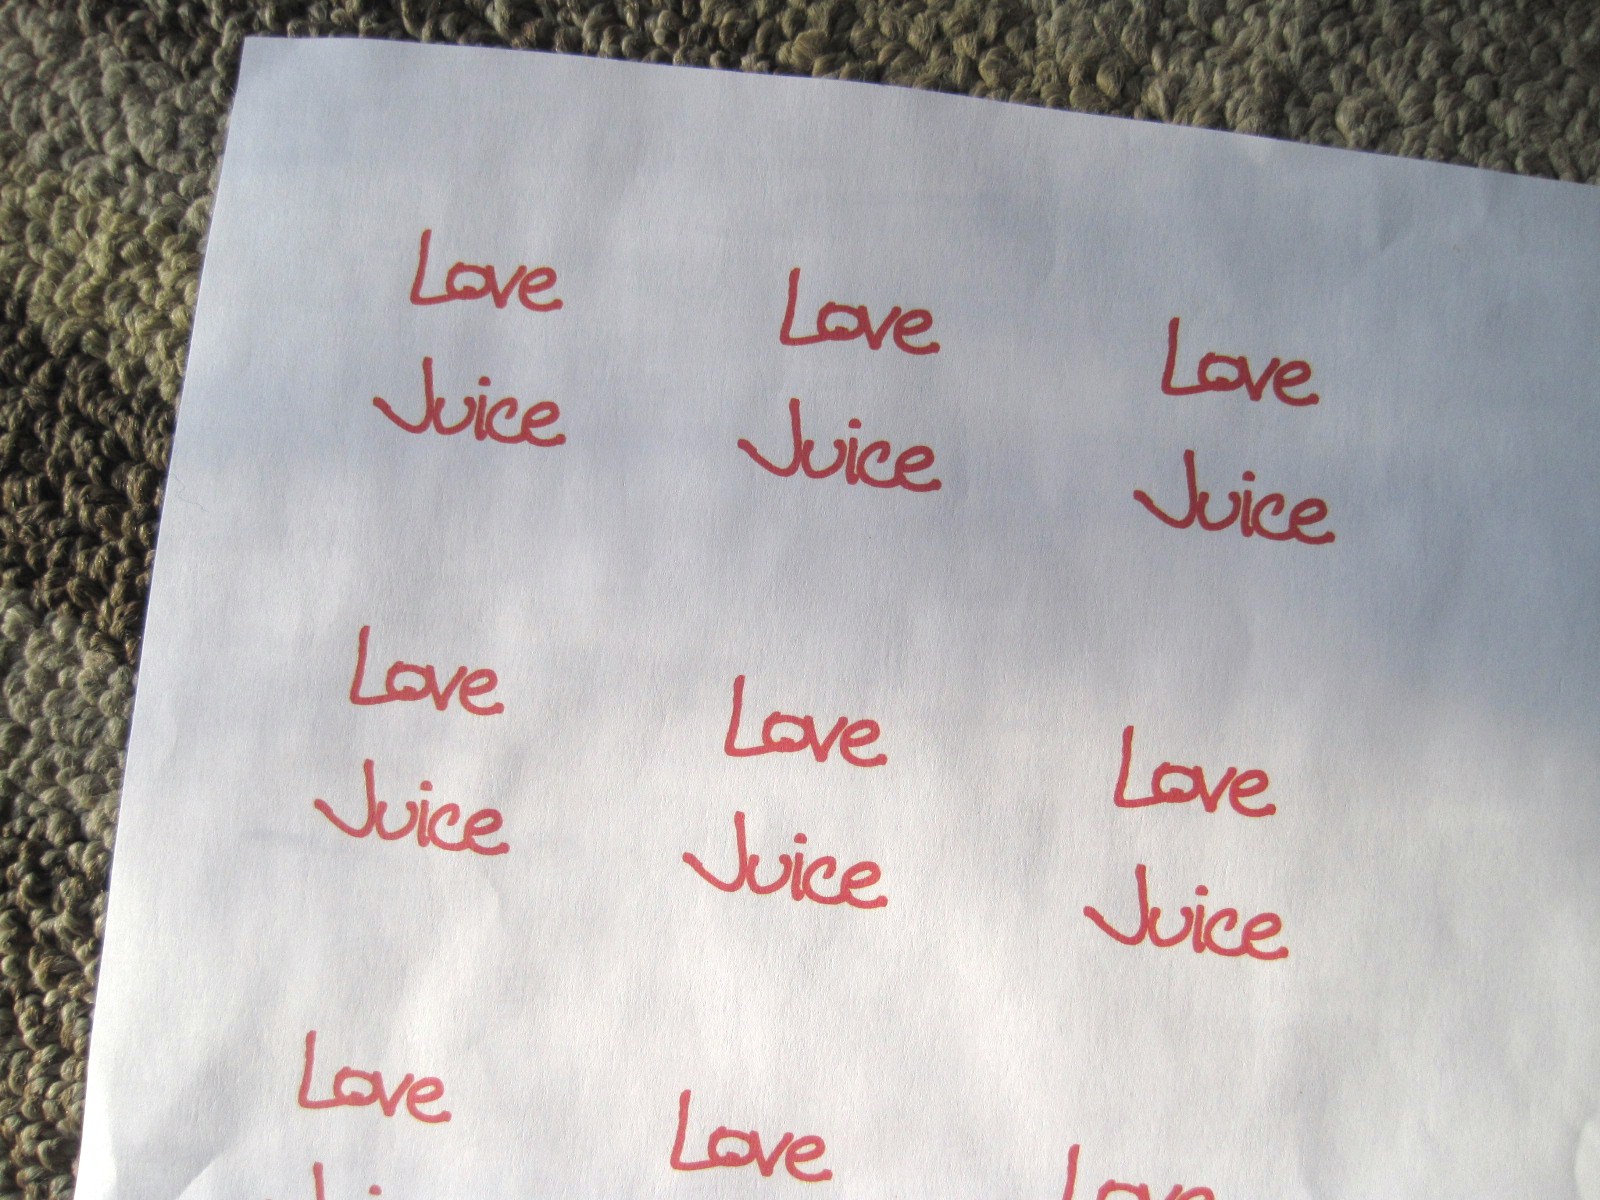 Love Love Love
Juice Juice Juice
Love Love Love
Juice Juice Juice
Love Love Love